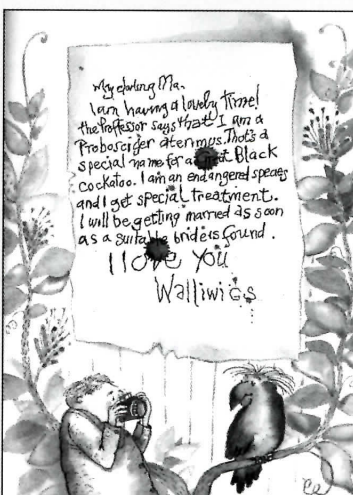 My darling Ma,
I am having a lovely time!
the Professor says that I am a
Probosciger aterrimus. That's a
special name for a Great Black
Cockatoo. I am an endangered species
and I get special treatment.
I will be getting married as soon
as a suitable bride is found.
I love you
Walliwigs